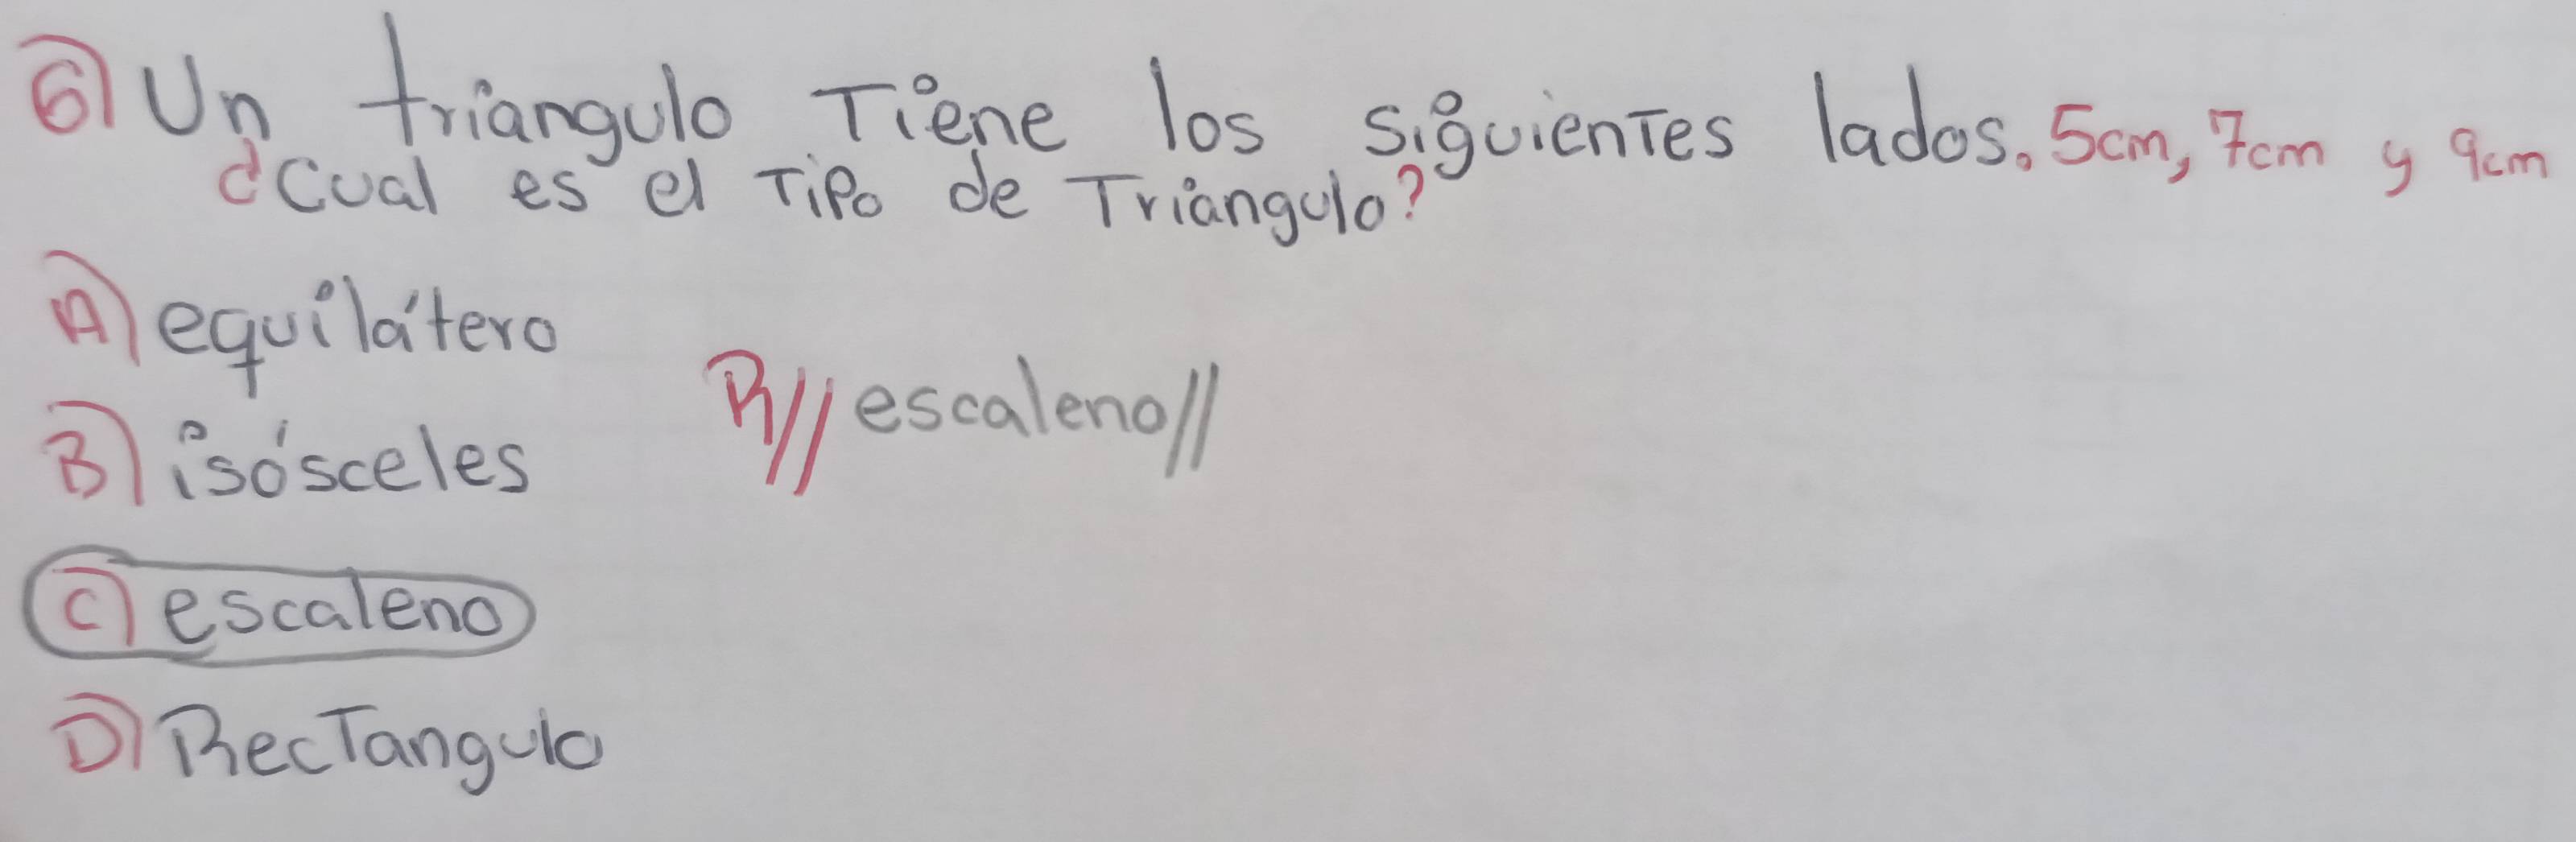 6) Un triangulo Tiene los siguienTes lados. 5cm, 7cm y 9cm
¿Cual es el Tipo de Triangulo?
A) equilátero
R// escaleno//
B) isósceles
C) escaleno
D) RecTangulo